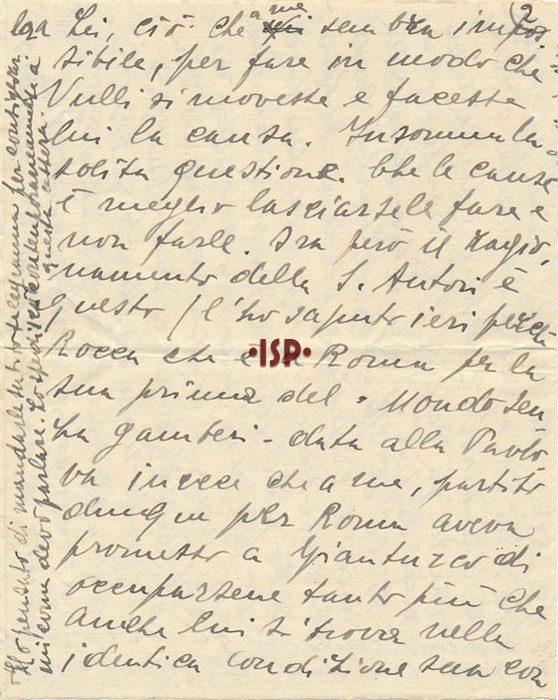 2
loza Lei, ciò che a me sembra impos
sibile, per fare in modo che
Vulli si movesse e facesse
lui la causa. Insomma la
solita questione. Che le cause
è meglio lasciarsele fare e
non farle. Ora però il ragio,
namento della S. Autori è
questo (l'ho saputo ieri perché
Rocca che è a Roma per la
sua prima del "Mondo sen
za gamberi - data alla Pavlo
va invece che a me, partito
dunque per Roma aveva
promesso a Gianturco di
occuparsene tanto più che
anche lui si trova nella
identica condizione sua con
Ho pensato di mandarle tutto per
mi come devo parlare. Lo spedisco contemporaneamente a
questa lettera.
•ISP•